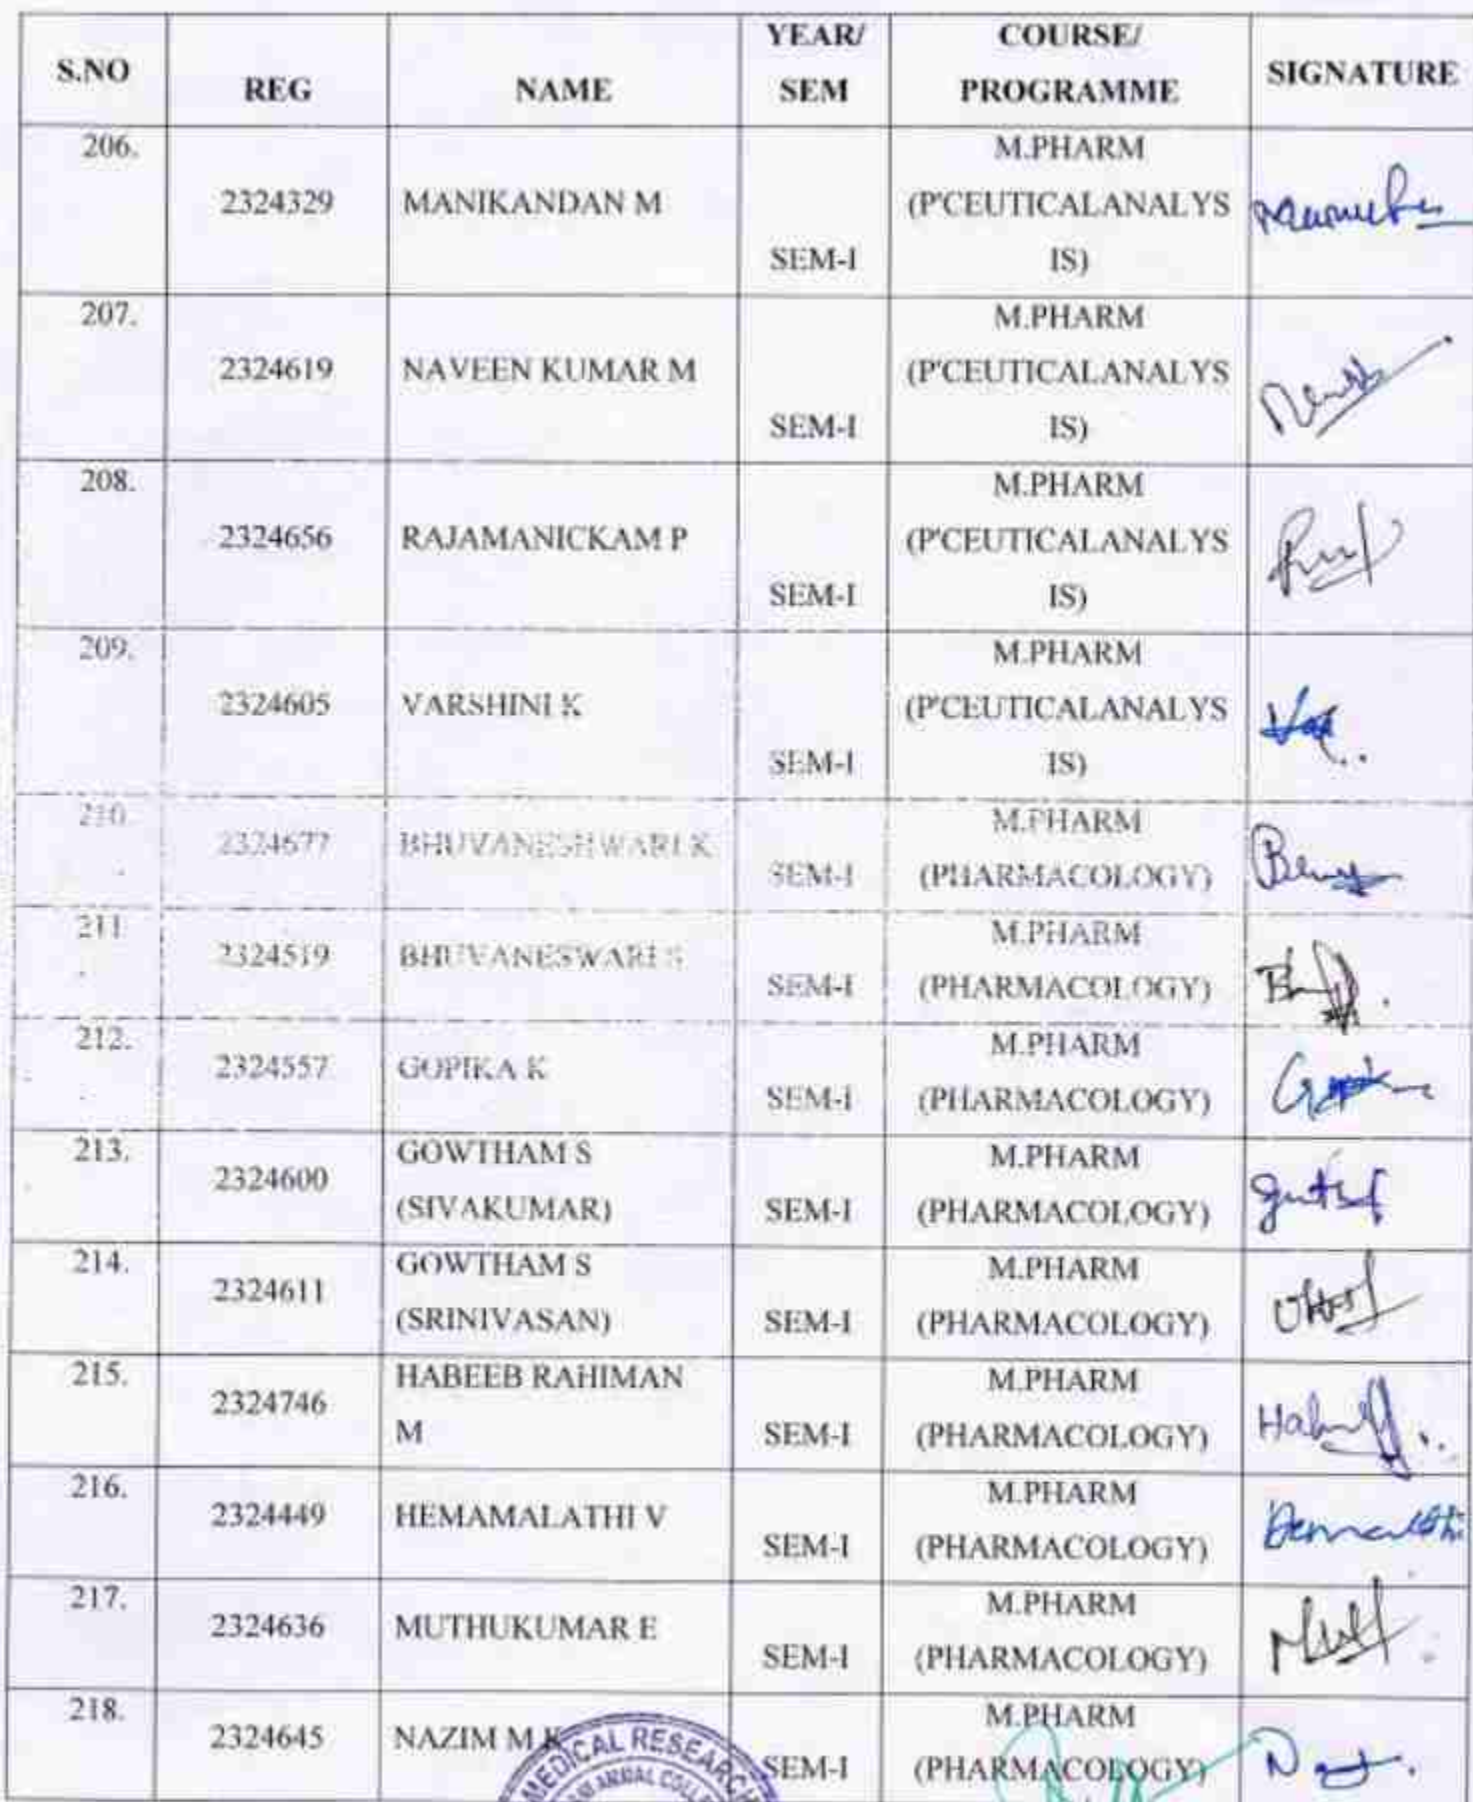 S.NO REG NAME YEAR/ SEM COURSE/ PROGRAMME SIGNATURE
206. 2324329 MANIKANDAN M SEM-I M.PHARM
(P'CEUTICALANALYS
IS)
207. 2324619 NAVEEN KUMAR M SEM-I M.PHARM
(P'CEUTICALANALYS
IS)
208. 2324656 RAJAMANICKAM P SEM-I M.PHARM
(P'CEUTICALANALYS
IS)
209. 2324605 VARSHINI K SEM-I M.PHARM
(P'CEUTICALANALYS
IS)
210. 2324677 BHUVANESHWARI K SEM-I M.PHARM
(PHARMACOLOGY)
211. 2324519 BHUVANESWARI S SEM-I M.PHARM
(PHARMACOLOGY)
212. 2324557 GOPIKA K SEM-I M.PHARM
(PHARMACOLOGY)
213. 2324600 GOWTHAM S
(SIVAKUMAR) SEM-I M.PHARM
(PHARMACOLOGY)
214. 2324611 GOWTHAM S
(SRINIVASAN) SEM-I M.PHARM
(PHARMACOLOGY)
215. 2324746 HABEEB RAHIMAN
M SEM-I M.PHARM
(PHARMACOLOGY)
216. 2324449 HEMAMALATHI V SEM-I M.PHARM
(PHARMACOLOGY)
217. 2324636 MUTHUKUMAR E SEM-I M.PHARM
(PHARMACOLOGY)
218. 2324645 NAZIM M K SEM-I M.PHARM
(PHARMACOLOGY)
MEDICAL RESEARCH